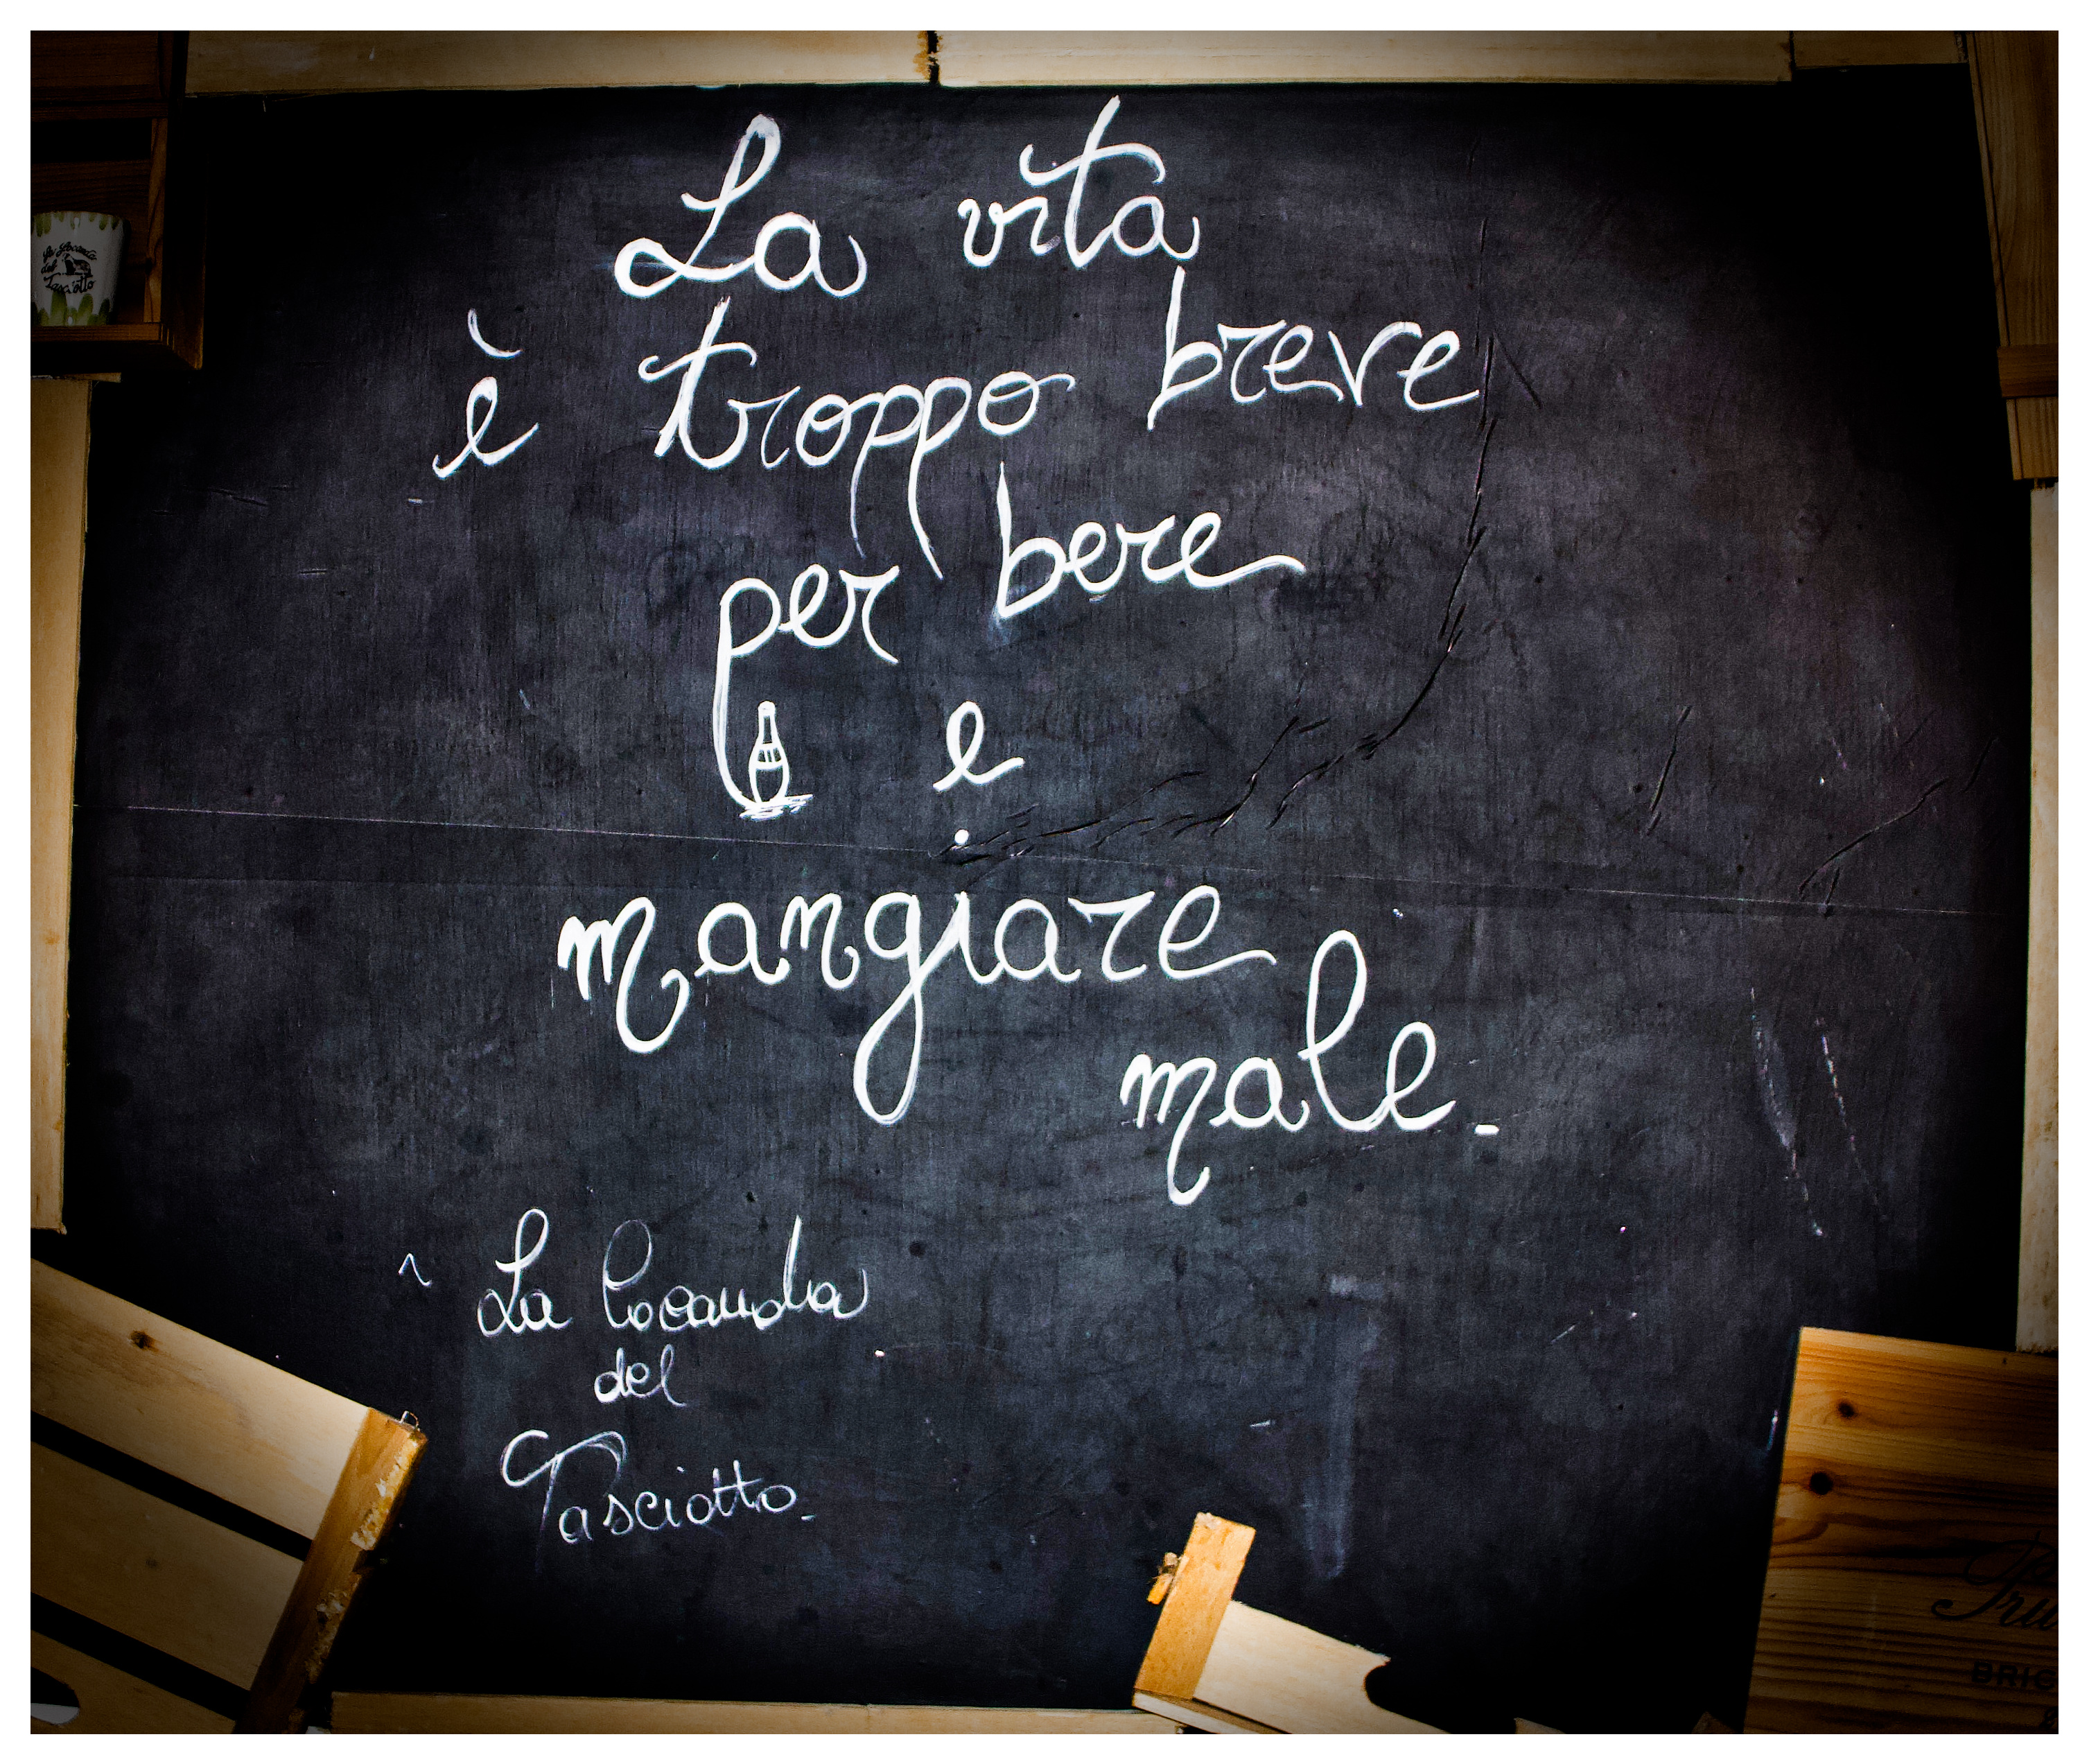 La vita
è troppo breve
per bere
e
mangiare
male.
La locanda
del
Tasciotto.
La Locanda
del
Tasciotto
BRIC